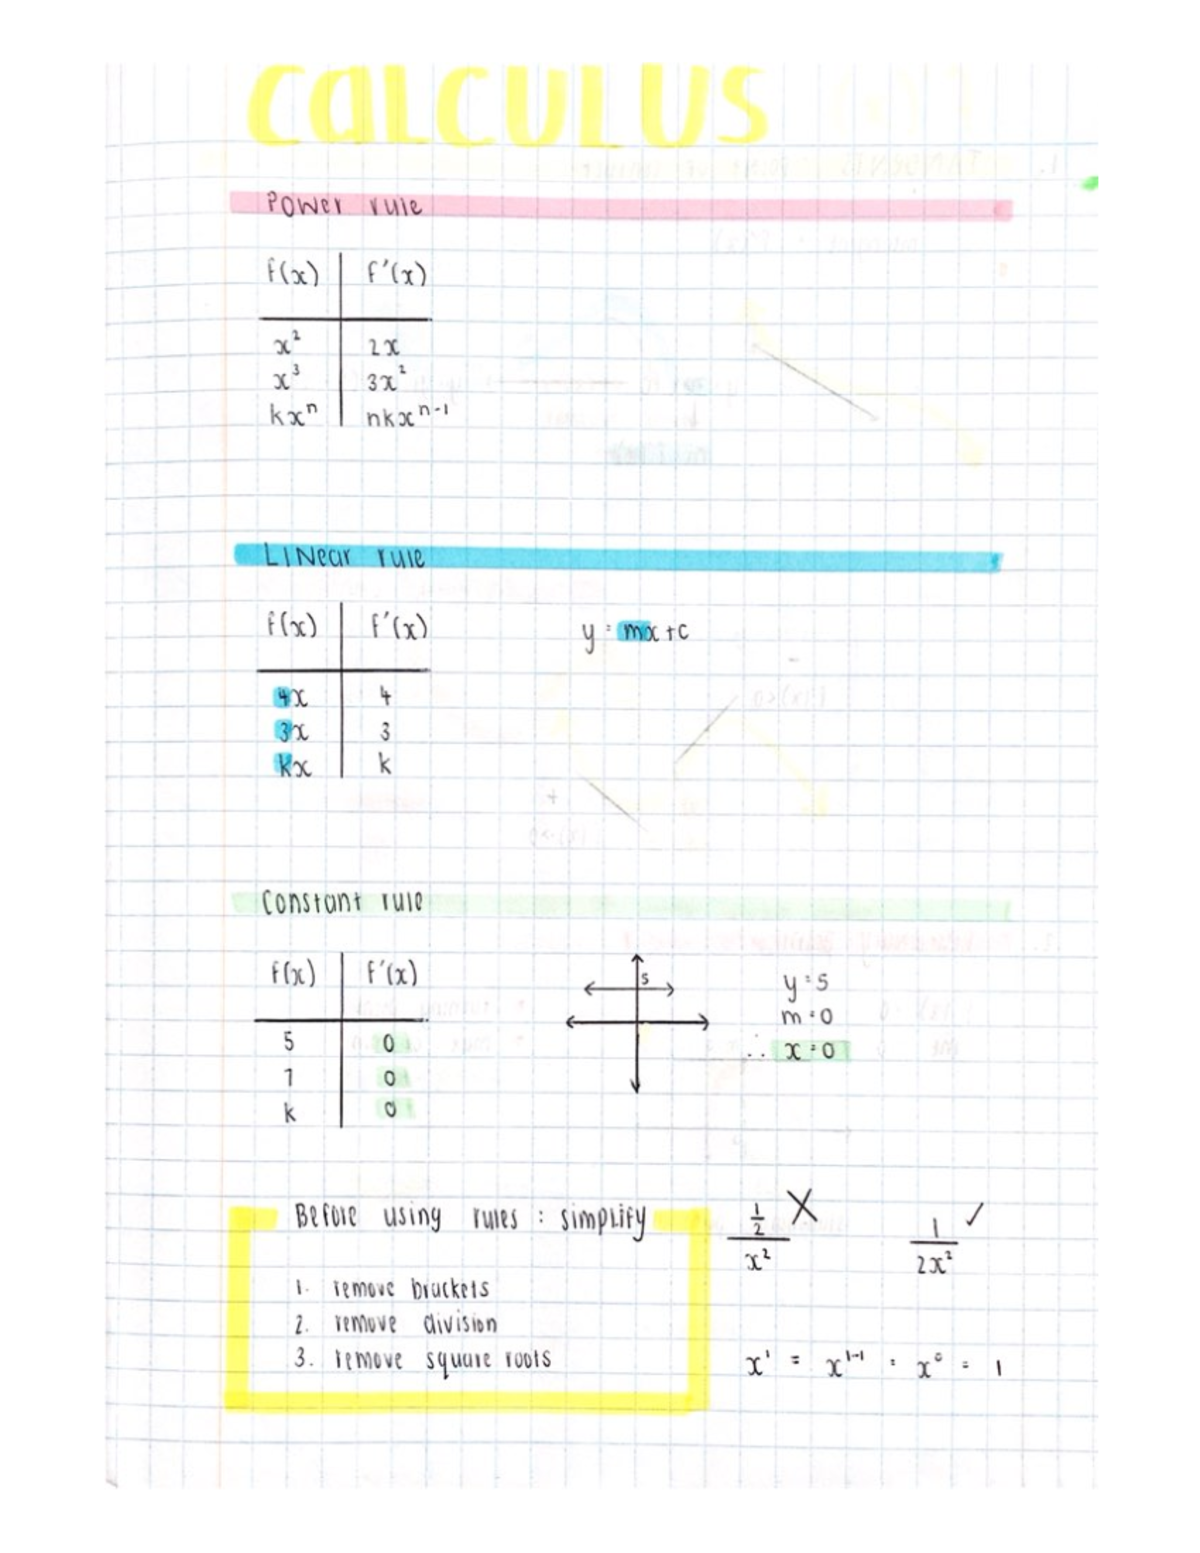 CALCULUS
Power rule
f(x) f'(x)
x² 2x
x³ 3x²
kxⁿ nkxⁿ⁻¹
Linear rule
f(x) f'(x)
y = mx + c
4x 4
3x 3
kx k
Constant rule
f(x) f'(x)
5
y = 5
m = 0
∴ x = 0
5 0
7 0
k 0
Before using rules : simplify
1. remove brackets
2. remove division
3. remove square roots
½/x² ✗ 1/2x² ✓
x¹ = x¹⁻¹ = x⁰ = 1